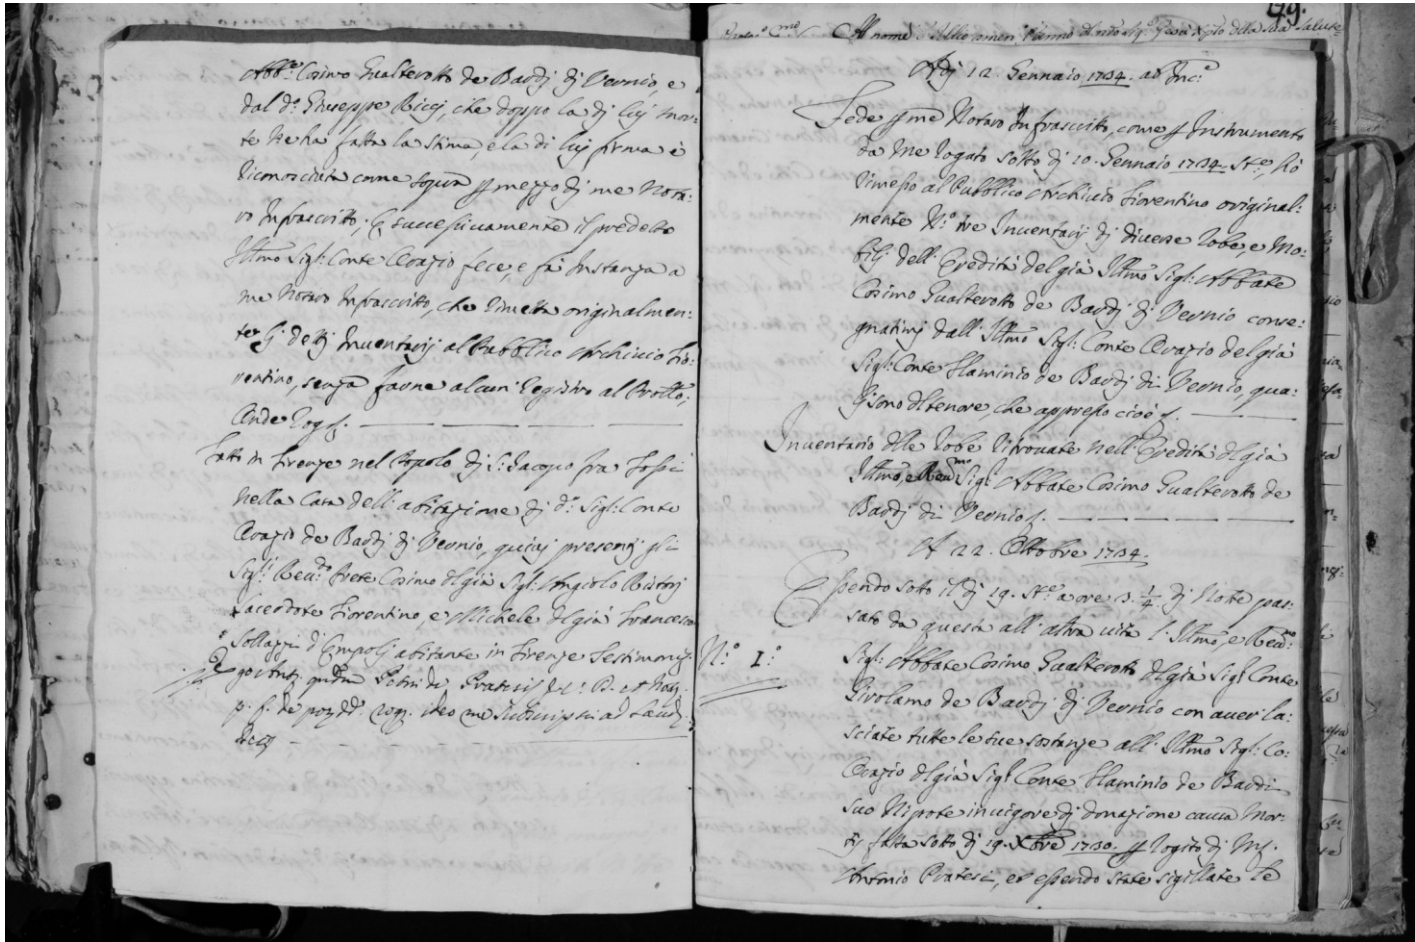 Abb.e Cosimo Gualterotto de Bardj dj Vernio, e
dal d.o Giuseppe Ricci, che doppo la dj luj mor-
te ne ha fatta la stima, e la di luj firma è
riconosciuta come sopra p mezzo dj me Nota-
ro Infrascritto; E successivamente il predetto
Illmo Sigl: Conte Orazio fece, e fà Instanza a
me Notaro Infrascritto, che rimetta originalmen-
te gl'detti Inventarij al Pubblico Archivio Fio-
rentino, senza farne alcun registro al Protto;
Ande Rog
Fatto in Firenze nel Popolo dj S: Jacopo fra Fossi
nella Casa dell'abitazione dj d.o Sigl: Conte
Orazio de Bardj dj Vernio, quivj presentj gli
Sigl: Reu:do Prete Cosimo dlgià Sigl: Angiolo
Sacerdote Fiorentino, e Michele dlgià Francesco
Sollazzi d'Empolj abitante in Firenze Testimonij
ideo me subscripsi ad Laud:
49.
Al nome d'Iddio amen l'anno della sua salute
Adj 12. Gennaio 1734. ab Inc:e
Fede p me Notaro Infrascritto, come p Instrumento
da me rogato sotto dj 10. Gennaio 1734. st.e, hò
rimesso al Pubblico Archivio Fiorentino original:
mente N.o tre Inventarij dj diverse robe, e Mo:
bilj dell'Eredità del già Illmo Sigl: Abbate
Cosimo Gualterotto de Bardj dj Vernio conse:
gnatimj dall'Illmo Sigl: Conte Orazio del già
Sigl: Conte Flaminio de Bardj di Vernio, qua:
lj sono dl tenore, che appresso cioè
Inventario dlle robe ritrovate nell'Eredità dlgià
Illmo, e Reu:mo Sigl: Abbate Cosimo Gualterotto de
Bardj di Vernio
A 22. Ottobre 1734.
Essendo soto il dj 19. st.e a ore 3. 1/4 dj Note pas:
sato da questa all'altra vita l'Illmo e Reu:mo
N.o I.o
Sigl: Abbate Cosimo Gualterotti dlgià Sigl Conte
Girolamo de Bardj dj Vernio con aver la:
sciate tutte le sue sostanze all'Illmo Sigl: Co:
Orazio dlgià Sigl: Conte Flaminio de Bardi
suo Nipote in vigore dj donazione causa Mor:
tis fatta sotto dj 19. Xbre 1730. p rogito dj M.
Antonio Pratesi, et essendo state sigillate le